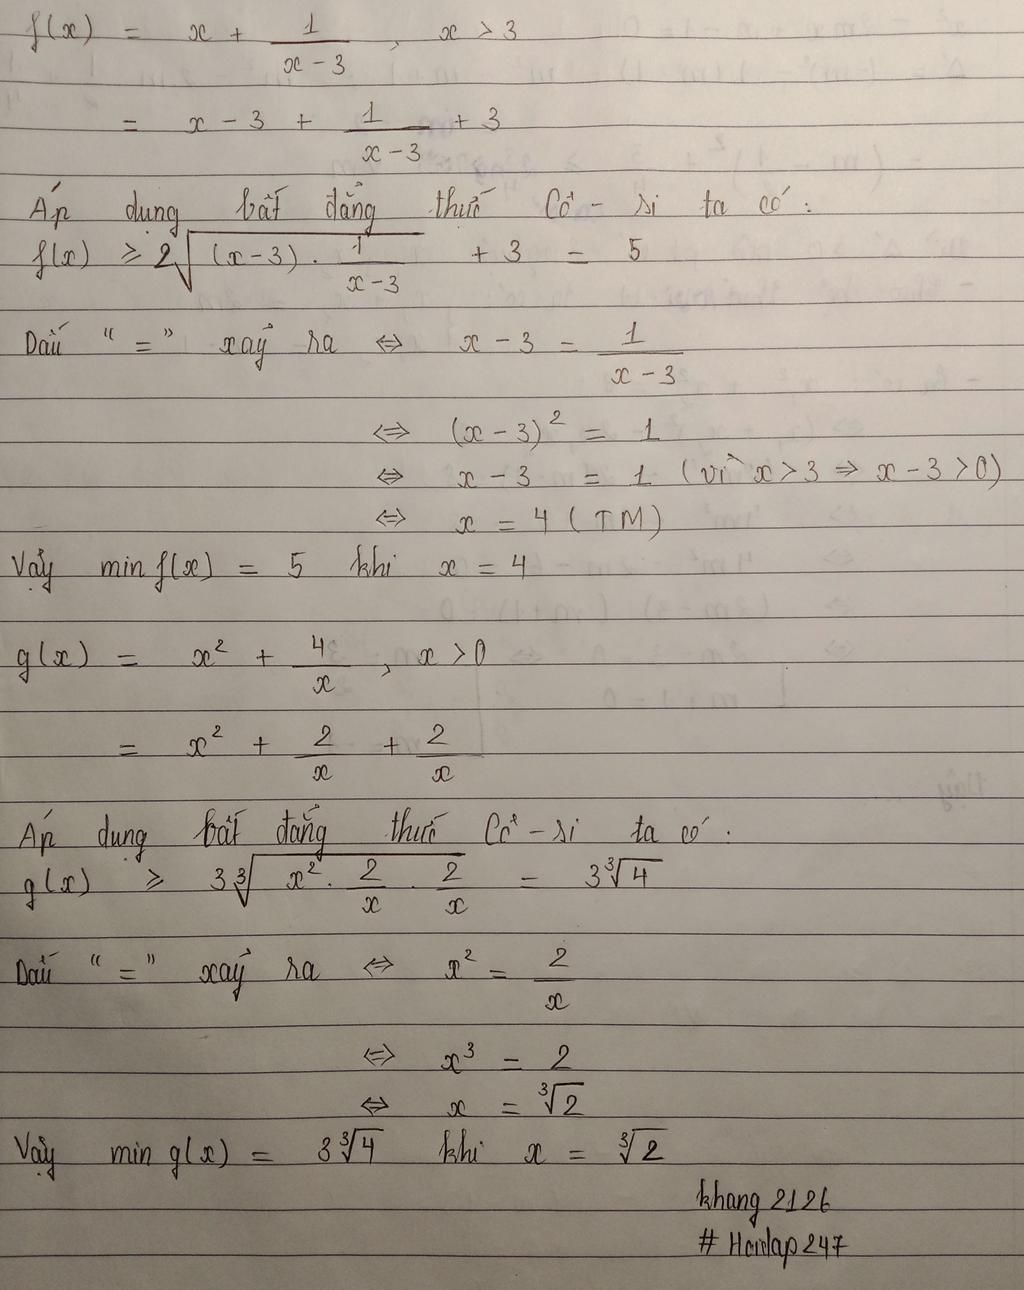 f(x) = x + 1/(x - 3), x > 3
= x - 3 + 1/(x - 3) + 3
Áp dụng bất đẳng thức Cô - si ta có:
f(x) ≥ 2√((x-3) . 1/(x-3)) + 3 = 5
Dấu " = " xảy ra ⇔ x - 3 = 1/(x - 3)
⇔ (x - 3)² = 1
⇔ x - 3 = 1 (vì x > 3 ⇒ x - 3 > 0)
⇔ x = 4 (TM)
Vậy min f(x) = 5 khi x = 4
g(x) = x² + 4/x, x > 0
= x² + 2/x + 2/x
Áp dụng bất đẳng thức Cô - si ta có:
g(x) ≥ 3∛(x² . 2/x . 2/x) = 3∛4
Dấu " = " xảy ra ⇔ x² = 2/x
⇔ x³ = 2
⇔ x = ∛2
Vậy min g(x) = 3∛4 khi x = ∛2
khang 2126
# Hoidap247